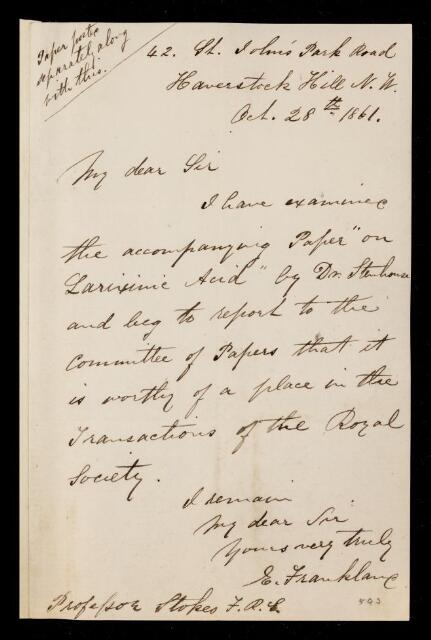 Paper posted
separately along
with this.
42. St. John's Park Road
Haverstock Hill N.W.
Oct. 28th 1861.
My dear Sir
I have examined
the accompanying Paper "on
Larixinic Acid" by Dr. Stenhouse
and beg to report to the
Committee of Papers that it
is worthy of a place in the
Transactions of the Royal
Society.
I remain
My dear Sir
Yours very truly
E. Frankland
Professor Stokes F.R.S.